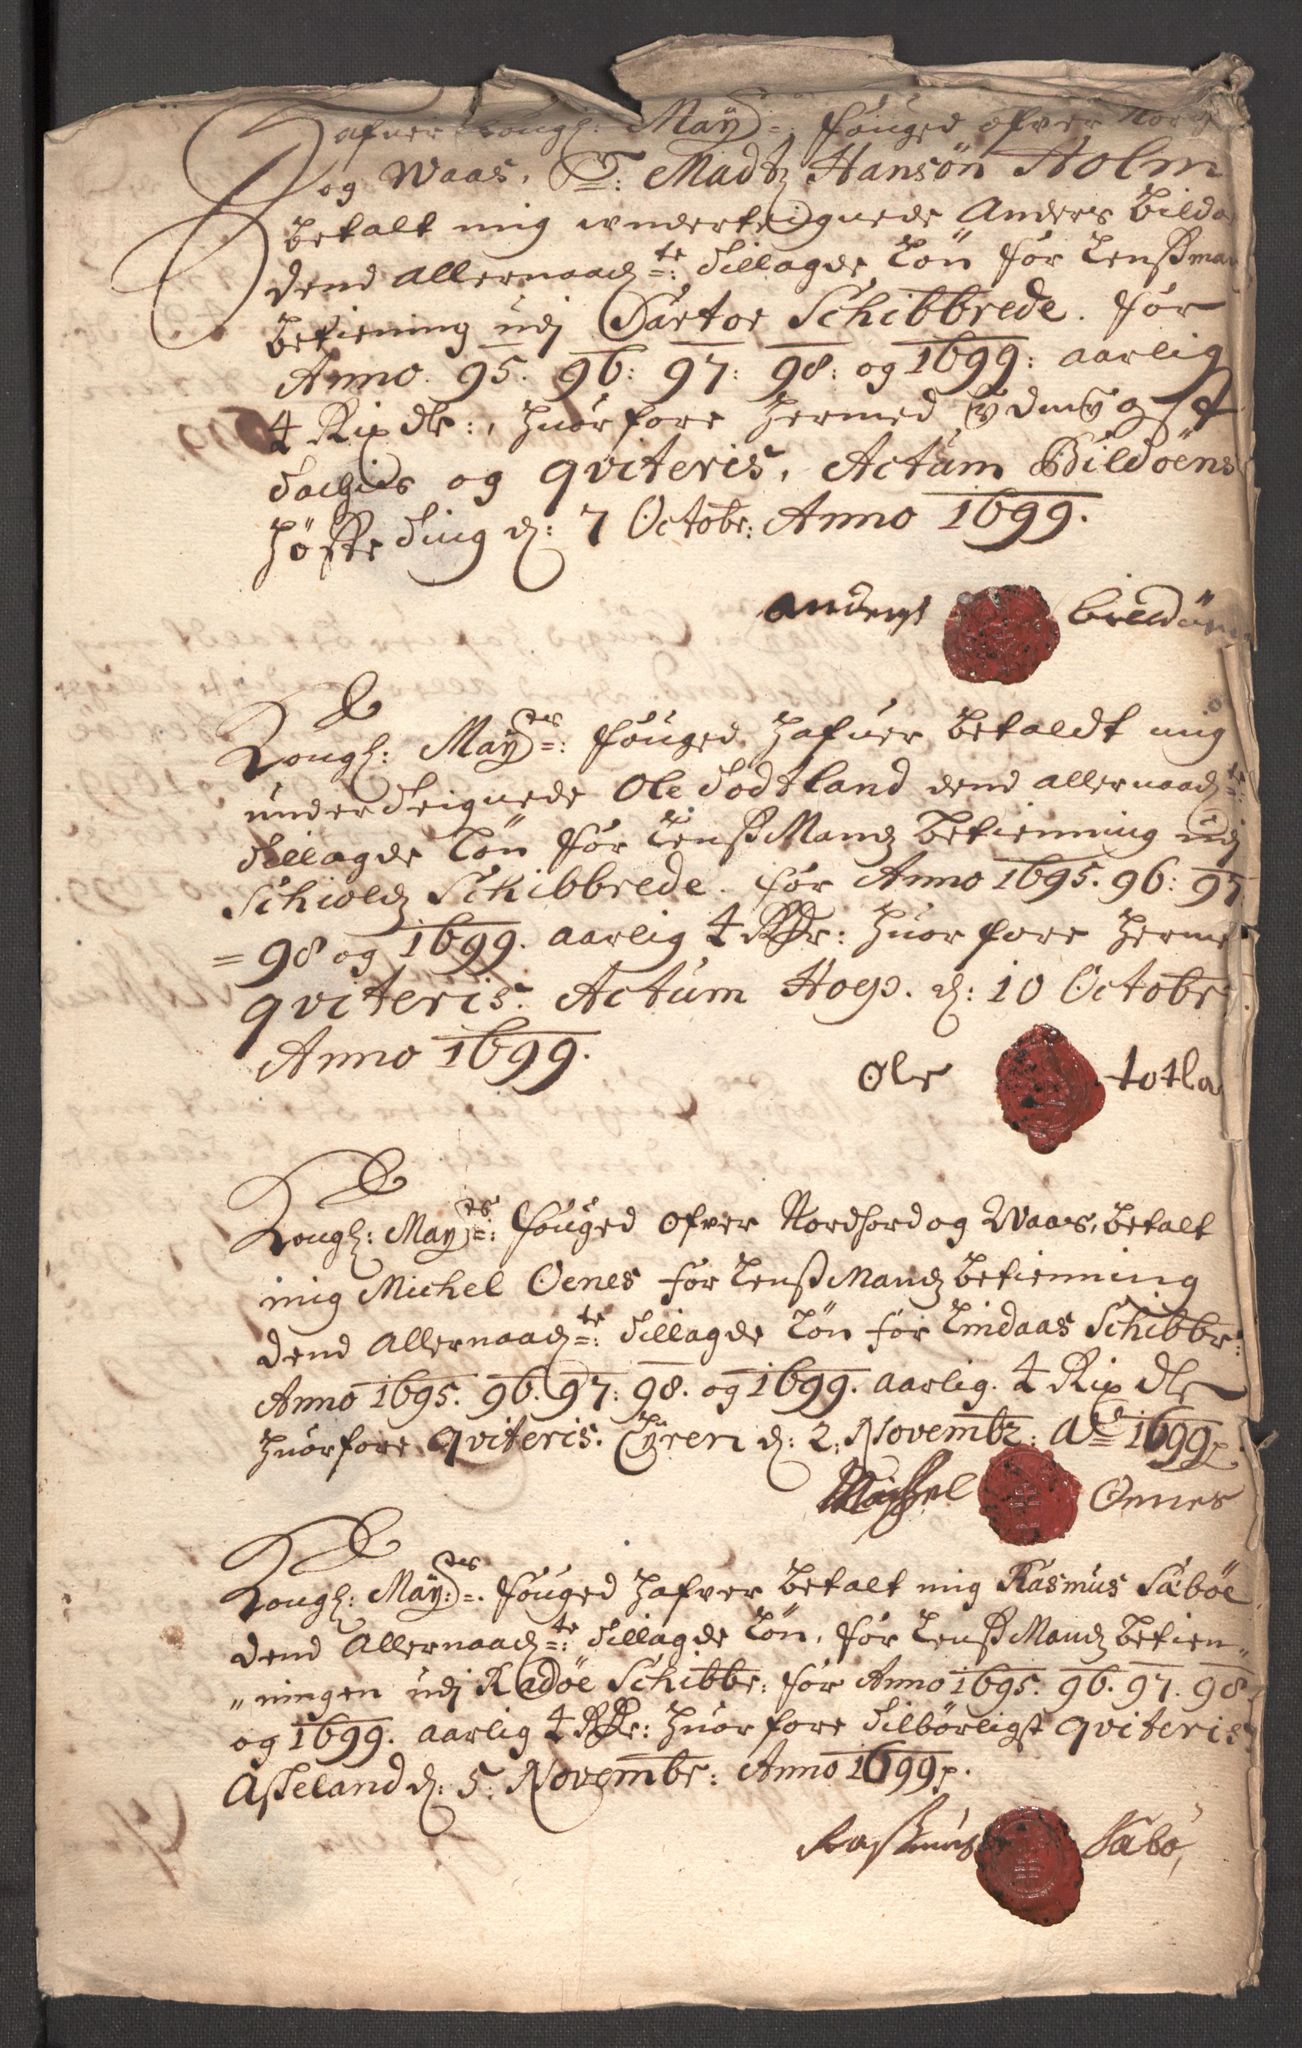 Hafver Kongl: May: fouged ofver Nor
og Waas, Sr: Madtz Hansøn Holm
betalt mig underteignede Anders Bildø
dend allernaadte: tillagde Løn for Lenßman
betiening udj Sartor Schibbrede. for
Anno. 95. 96: 97: 98: og 1699: aarlig
4 Rix dlr:, huorfore hermed ydmygst
tachis og qviteris, Actum Bildøens
høste ting d: 7 Octobr: Anno 1699.
Anders
Kongl: Mayts: fouged hafuer betaldt mig
underteignede Ole Todtland dend allernaadte:
tillagde Løn for LenßMandz betienning udj
Schioldz Schibbrede. for Anno 1695. 96: 97
= 98 og 1699. aarlig 4 Rdr: huorfore herme
qviteris. Actum d: 10 Octobr
Anno 1699.
Ole totla
Kongl: Mayts: fouged ofver Nordhord og Waas, betalt
mig Michel Oenes for LenßMandz betienning
dend allernaadte: tillagde Løn for Lindaas Schibbr:
Anno 1695. 96. 97: 98. og 1699. aarlig. 4 Rix dlr
huorfore qviteris. d: 2: Novembr: Ao 1699
Michel Onnes
Kongl: Mayts: fouged hafver betalt mig Rasmus Sæbøe
dend allernaadte: tillagde Løn, for LenßMandz betien=
=ningen udj Radøe Schibbr: for Anno 1695. 96. 97. 98
og 1699. aarlig 4 Rdr: huorfore tilbørligst qviteris
Asseland d: 5: Novembr: Anno 1699
Rasmus Sæbø